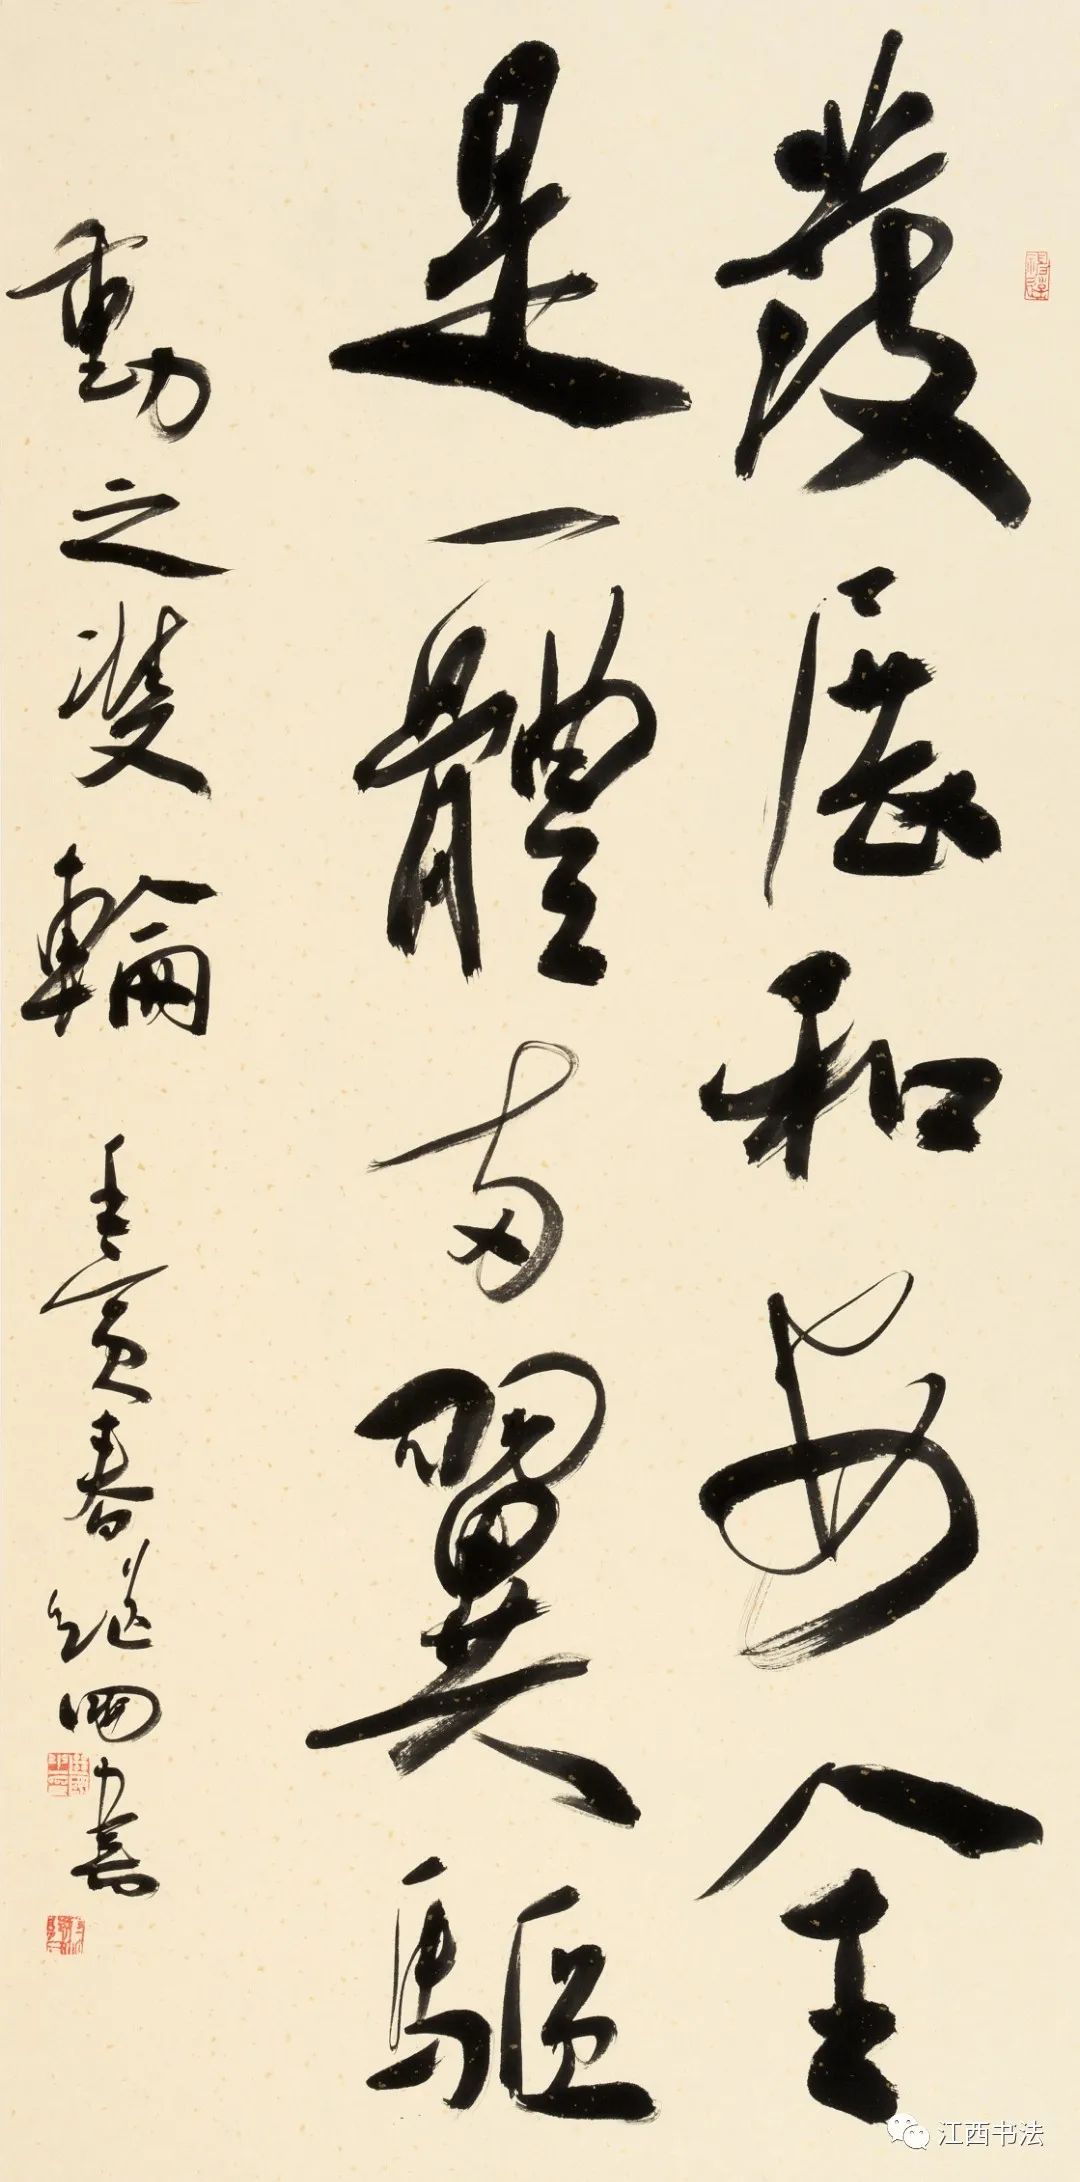 發展和安全
是一體兩翼驅
動之雙輪 壬寅春書
江西书法